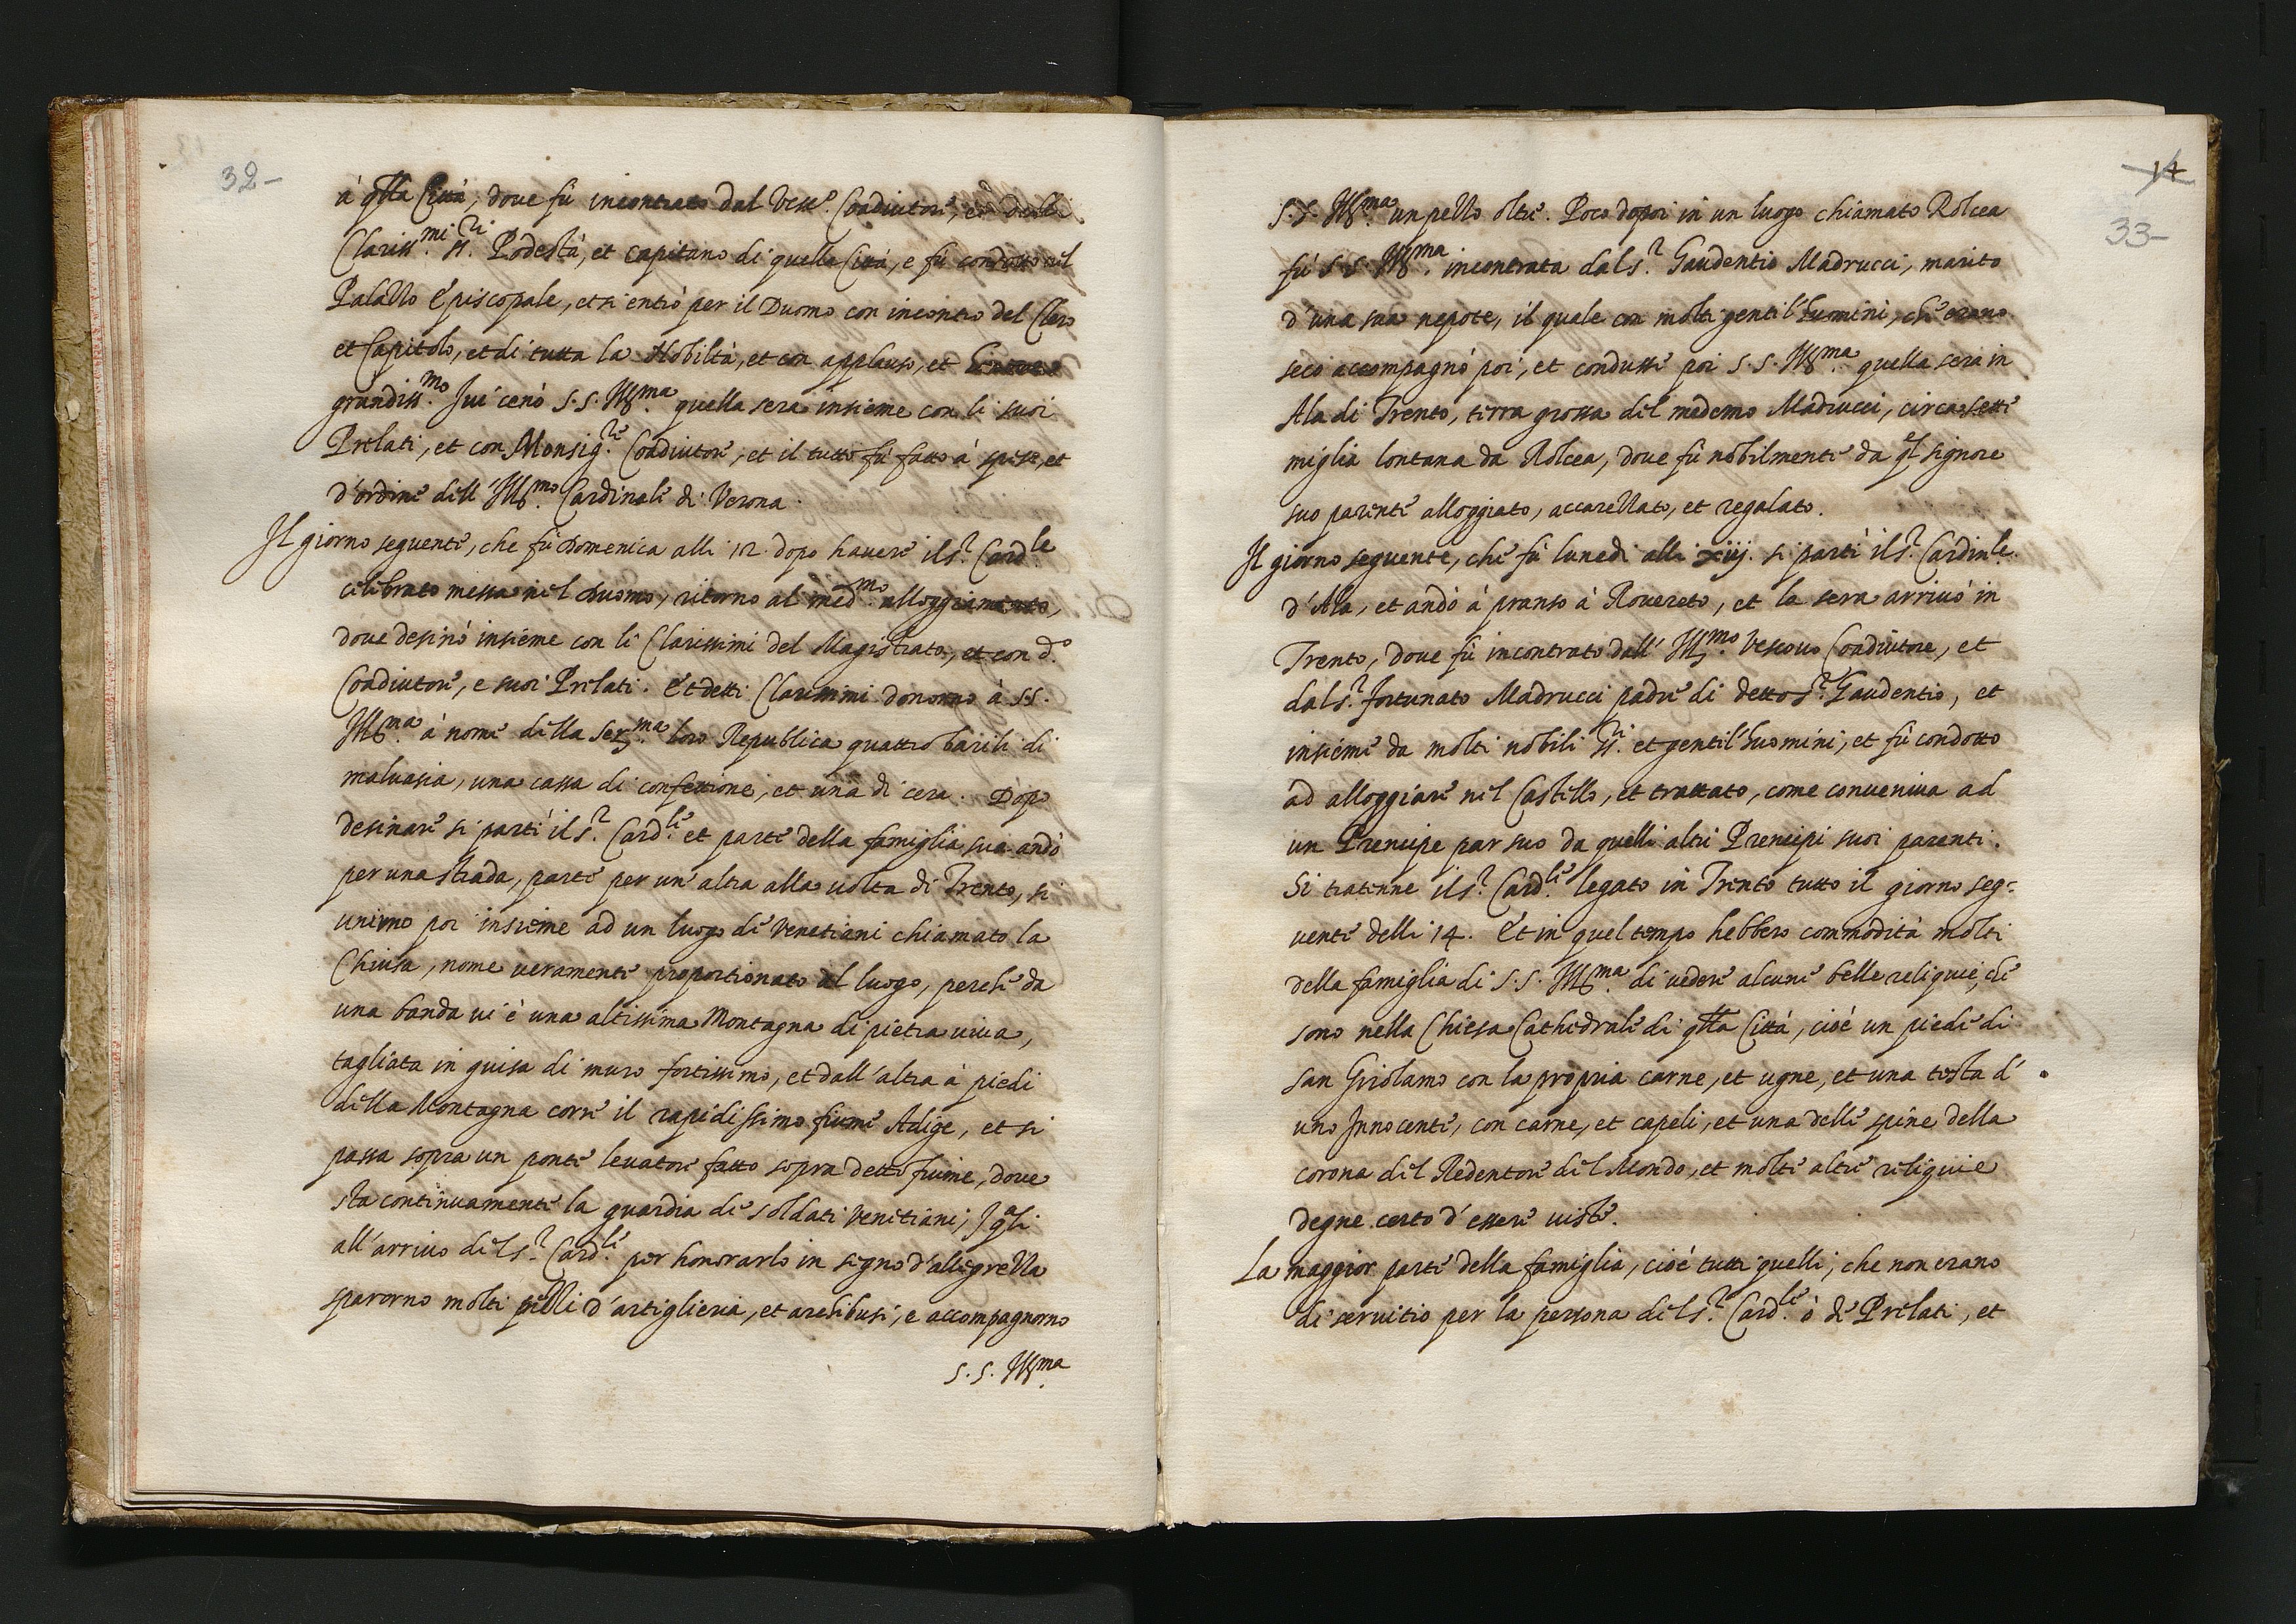 32-
à qlla Città, dove fù incontrato dal Vesc.º Coadiutore, et dalli
Clariss.mi ss.ri Podestà, et capitano di quella Città, e fù condotto nel
Palazzo Episcopale, et si entrò per il Duomo con incontro del Clero
et Capitolo, et di tutta la Nobiltà, et con applauso, et
grandiss.mo Jui cenò S.S. Ill.ma quella sera insieme con li suoi
Prelati, et con Monsig.re Coadiutore, et il tutto fù fatto à spese, et
d'ordine dell'Ill.mo Cardinale di Verona.
Il giorno seguente, che fù Domenica alli 12. dopo havere il s.r Card.le
celebrato messa nel duomo, ritorno al med.mo alloggiamento,
dove desinò insieme con li Clarissimi del Magistrato, et con d.º
Coadiutore, e suoi Prelati. Et detti Clarissimi donorno à S.S.
Ill.ma à nome della Ser.ma loro Republica quattro barili di
malvasia, una cassa di confettione, et una di cera. Dopo
desinare si partì il s.r Card.le et parte della famiglia sua andò
per una strada, parte per un'altra alla uolta di Trento, si
unirno poi insieme ad un luogo de Venetiani chiamato la
Chiusa, nome ueramente proportionato al luogo, perche da
una banda ui è una altissima Montagna di pietra uiua,
tagliata in guisa di muro fortissimo, et dall'altra à piedi
della Montagna corre il rapidissimo fiume Adige, et si
passa sopra un ponte leuatore fatto sopra detto fiume, dove
sta continuamente la guardia de soldati Venetiani, J q.ali
all'arriuo del s.r Card.le per honorarlo in segno d'allegrezza
sparorno molti pezzi d'artiglieria, et archibusi, e accompagnorno
S.S. Ill.ma
14
33-
S.S. Ill.ma un pezzo oltre. Poco dopoi in un luogo chiamato Rolcea
fù S.S. Ill.ma incontrata dal s.r Gaudentio Madrucci, marito
d'una sua nepote, il quale con molti gentil'huomini, ch'erano
seco accompagnò poi, et condusse poi S.S. Ill.ma quella sera in
Ala di Trento, terra grossa del medemo Madrucci, circa sette
miglia lontana da Rolcea, dove fù nobilmente da q.el signore
suo parente alloggiato, accarezzato, et regalato.
Il giorno seguente, che fù lunedi alli xiij. si partì il s.r Cardin.le
d'Ala, et andò à pranso à Rovereto, et la sera arriuò in
Trento, dove fù incontrato dall'Ill.mo Vescouo Coadiutore, et
dal s.r Fortunato Madrucci padre di detto s.r Gaudentio, et
insieme da molti nobili ss.ri et gentil'huomini, et fù condotto
ad alloggiare nel Castello, et trattato, come conueniua ad
un Prencipe par suo da quelli altri Prencipi suoi parenti.
Si tratenne il s.r Card.le legato in Trento tutto il giorno seg-
uente delli 14. Et in quel tempo hebbero commodità molti
della famiglia di S.S. Ill.ma di uedere alcune belle reliquie, che
sono nella Chiesa Cathedrale di qlla Città, cioè un piede di
san Girolamo con la propria carne, et ugne, et una testa d'
uno Innocente, con carne, et capeli, et una delle spine della
corona del Redentore del Mondo, et molte altre reliquie
degne certo d'essere uiste.
La maggior parte della famiglia, cioè tutti quelli, che non erano
di seruitio per la persona del s.r Card.le ò de Prelati, et